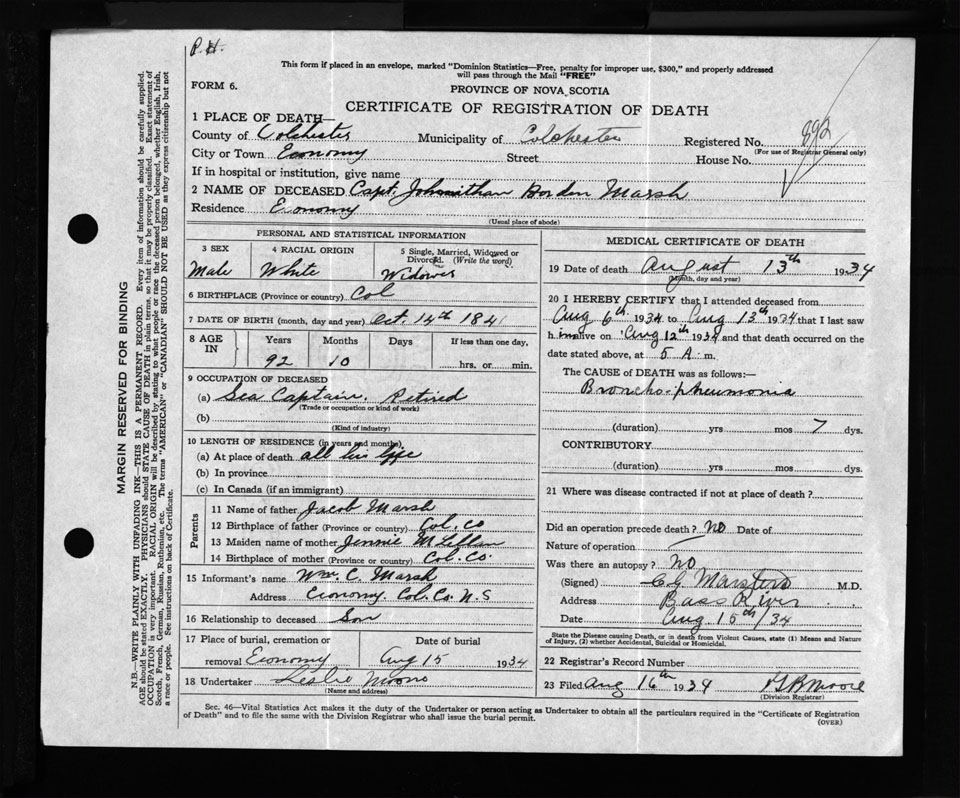 P.H.
This form if placed in an envelope, marked "Dominion Statistics—Free, penalty for improper use, $300," and properly addressed
will pass through the Mail "FREE"
FORM 6.
PROVINCE OF NOVA SCOTIA
CERTIFICATE OF REGISTRATION OF DEATH
1 PLACE OF DEATH—
County of Colchester Municipality of Colchester Registered No. 892
(For use of Registrar General only)
City or Town Economy Street House No.
If in hospital or institution, give name
2 NAME OF DECEASED Capt. Johnathan Borden Marsh
Residence Economy
(Usual place of abode)
PERSONAL AND STATISTICAL INFORMATION
3 SEX
Male
4 RACIAL ORIGIN
White
5 Single, Married, Widowed or
Divorced. (Write the word)
Widower
6 BIRTHPLACE (Province or country) Col
7 DATE OF BIRTH (month, day and year) Oct. 14th 184
8 AGE IN
Years Months Days If less than one day,
92 10 hrs. or min.
9 OCCUPATION OF DECEASED
(a) Sea Captain, Retired
(Trade or occupation or kind of work)
(b)
(Kind of industry)
10 LENGTH OF RESIDENCE (in years and months)
(a) At place of death all his life
(b) In province
(c) In Canada (if an immigrant)
Parents
11 Name of father Jacob Marsh
12 Birthplace of father (Province or country) Col. Co
13 Maiden name of mother Jennie McLellan
14 Birthplace of mother (Province or country) Col. Co.
15 Informant's name Wm. C. Marsh
Address Economy Col. Co. N.S
16 Relationship to deceased Son
17 Place of burial, cremation or
removal Economy
Date of burial
Aug 15 1934
18 Undertaker Leslie Moore
(Name and address)
MEDICAL CERTIFICATE OF DEATH
19 Date of death August 13th 1934
(Month, day and year)
20 I HEREBY CERTIFY that I attended deceased from
Aug 6th 1934 to Aug 13th 1934 that I last saw
h im alive on Aug 12th 1934 and that death occurred on the
date stated above, at 5 A. m.
The CAUSE of DEATH was as follows:—
Broncho-pneumonia
(duration) yrs mos 7 dys.
CONTRIBUTORY
(duration) yrs mos dys.
21 Where was disease contracted if not at place of death?
Did an operation precede death? NO Date of
Nature of operation
Was there an autopsy? NO
(Signed) M.D.
Address Bass River
Date Aug 15th/34
State the Disease causing Death, or in death from Violent Causes, state (1) Means and Nature
of Injury, (2) whether Accidental, Suicidal or Homicidal.
22 Registrar's Record Number
23 Filed Aug 16th 1934 Moore
(Division Registrar)
Sec. 46—Vital Statistics Act makes it the duty of the Undertaker or person acting as Undertaker to obtain all the particulars required in the "Certificate of Registration
of Death" and to file the same with the Division Registrar who shall issue the burial permit.
(OVER)
MARGIN RESERVED FOR BINDING
N.B.—WRITE PLAINLY WITH UNFADING INK—THIS IS A PERMANENT RECORD. Every item of information should be carefully supplied.
AGE should be stated EXACTLY. PHYSICIANS should STATE CAUSE OF DEATH in plain terms, so that it may be properly classified. Exact statement of
OCCUPATION is very important. RACIAL ORIGIN will be described by stating to what people or race the deceased person belonged, whether English, Irish,
Scotch, French, German, Russian, Ruthenian, etc. The terms "AMERICAN" or "CANADIAN" SHOULD NOT BE USED as they express citizenship but not
a race or people. See instructions on back of Certificate.